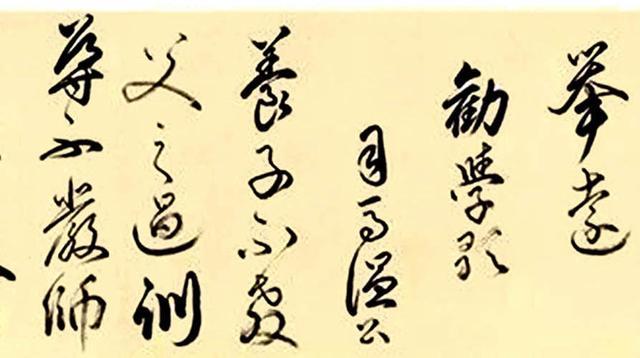 勸學歌
司馬溫公
養子不教
父之過訓
導不嚴師